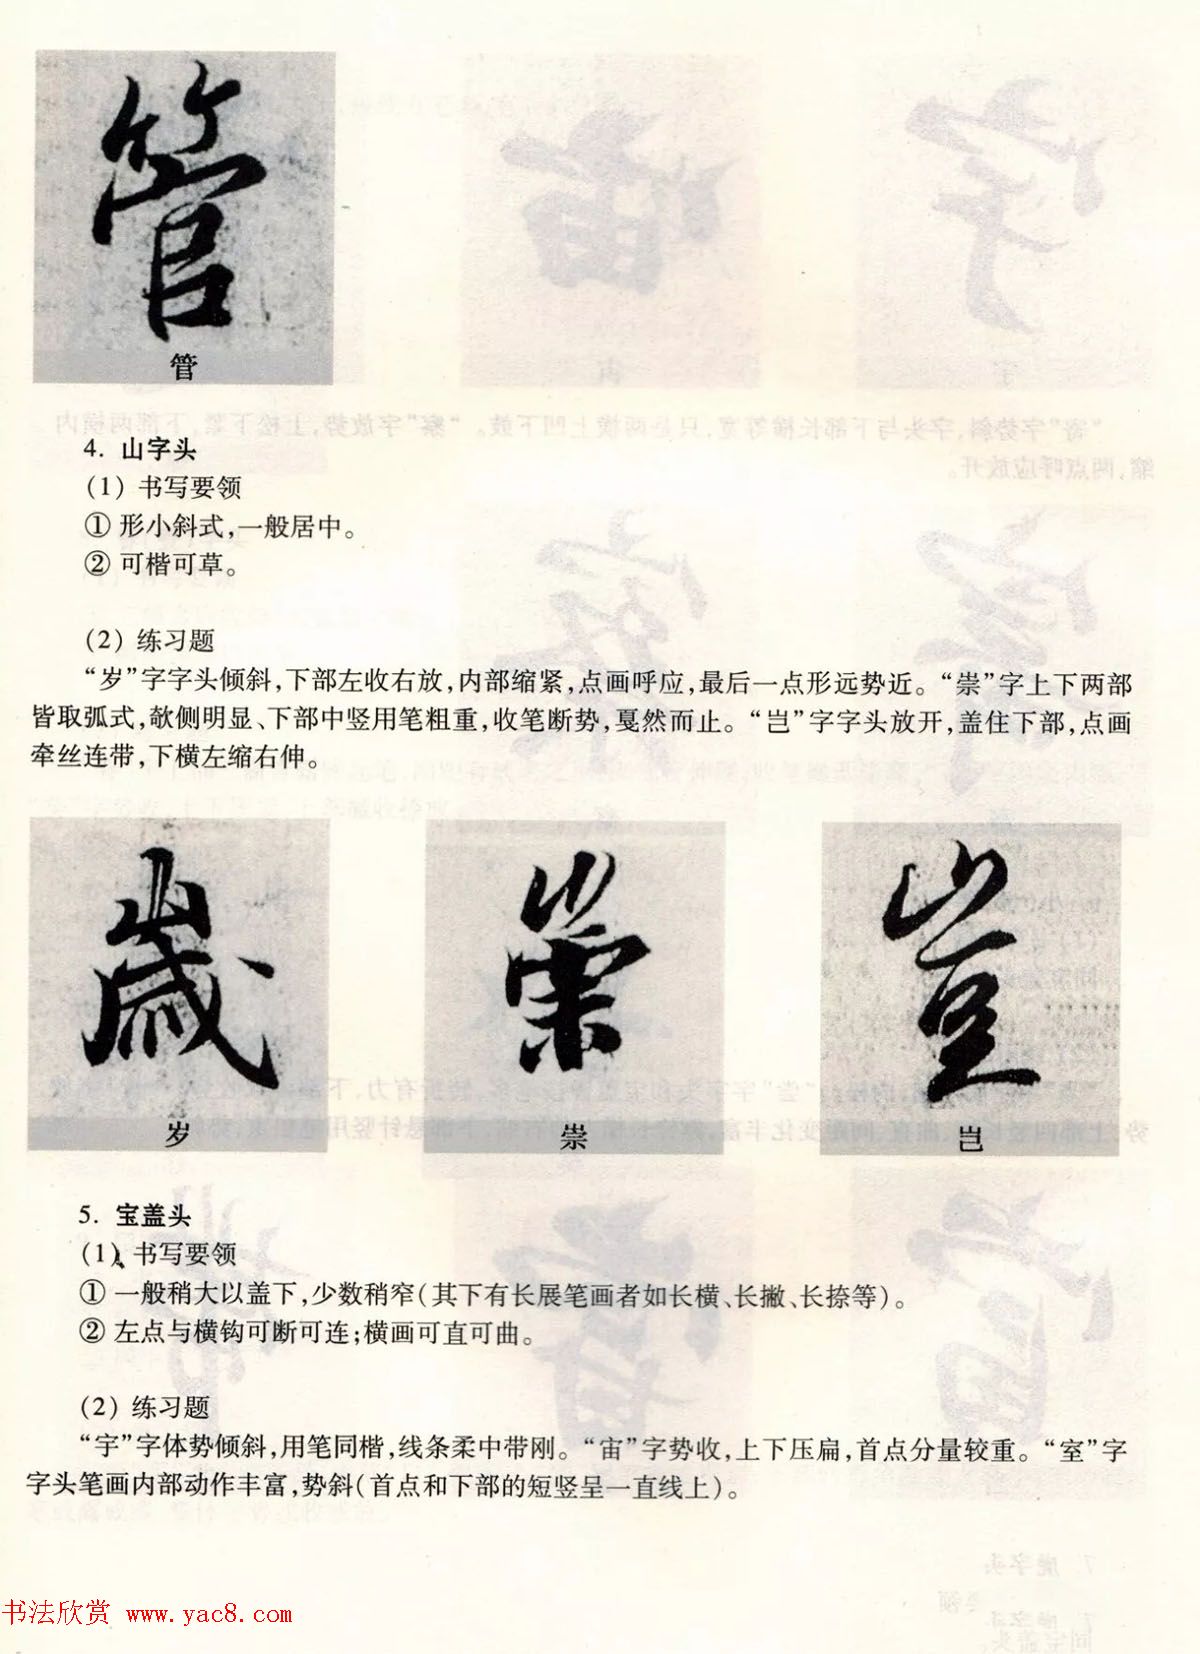 管
管
4. 山字头
(1) 书写要领
① 形小斜式,一般居中。
② 可楷可草。
(2) 练习题
“岁”字字头倾斜,下部左收右放,内部缩紧,点画呼应,最后一点形远势近。“崇”字上下两部
皆取弧式,欹侧明显、下部中竖用笔粗重,收笔断势,戛然而止。“岂”字字头放开,盖住下部,点画
牵丝连带,下横左缩右伸。
歲 崇 豈
岁 崇 岂
5. 宝盖头
(1) 书写要领
① 一般稍大以盖下,少数稍窄(其下有长展笔画者如长横、长撇、长捺等)。
② 左点与横钩可断可连;横画可直可曲。
(2) 练习题
“宇”字体势倾斜,用笔同楷,线条柔中带刚。“宙”字势收,上下压扁,首点分量较重。“室”字
字头笔画内部动作丰富,势斜(首点和下部的短竖呈一直线上)。
书法欣赏 www.yac8.com